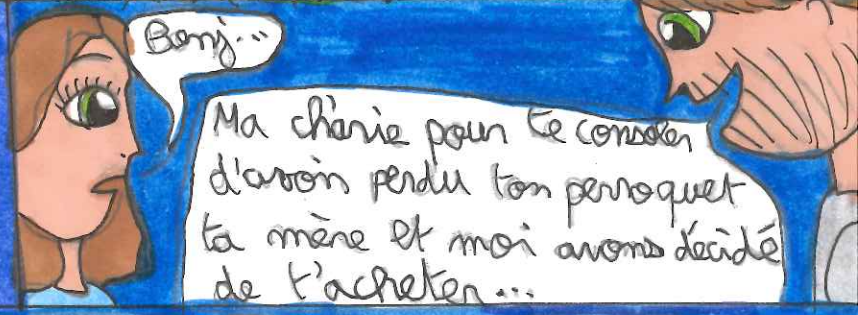 Bonj...
Ma chérie pour te consoler
d'avoir perdu ton perroquet
ta mère et moi avons décidé
de t'acheter...